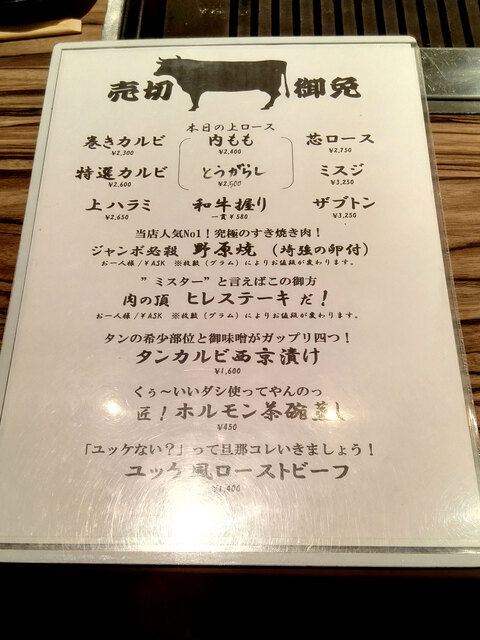 売切 御免
本日の上ロース
巻きカルビ 内もも 芯ロース
¥2,300 ¥2,400 ¥2,750
特選カルビ とうがらし ミスジ
¥2,600 ¥2,500 ¥3,250
上ハラミ 和牛握り ザブトン
¥2,650 一貫¥580 ¥3,250
当店人気No1!究極のすき焼き肉!
ジャンボ必殺 野原焼(埼強の卵付)
お一人様/¥ASK ※枚数(グラム)によりお値段が変わります。
"ミスター"と言えばこの御方
肉の頂 ヒレステーキ だ!
お一人様/¥ASK ※枚数(グラム)によりお値段が変わります。
タンの希少部位と御味噌がガップリ四つ!
タンカルビ西京漬け
¥1,600
くぅ~いいダシ使ってやんのっ
匠!ホルモン茶碗蒸し
¥450
「ユッケない?」って旦那コレいきましょう!
ユッケ風ローストビーフ
¥1,400